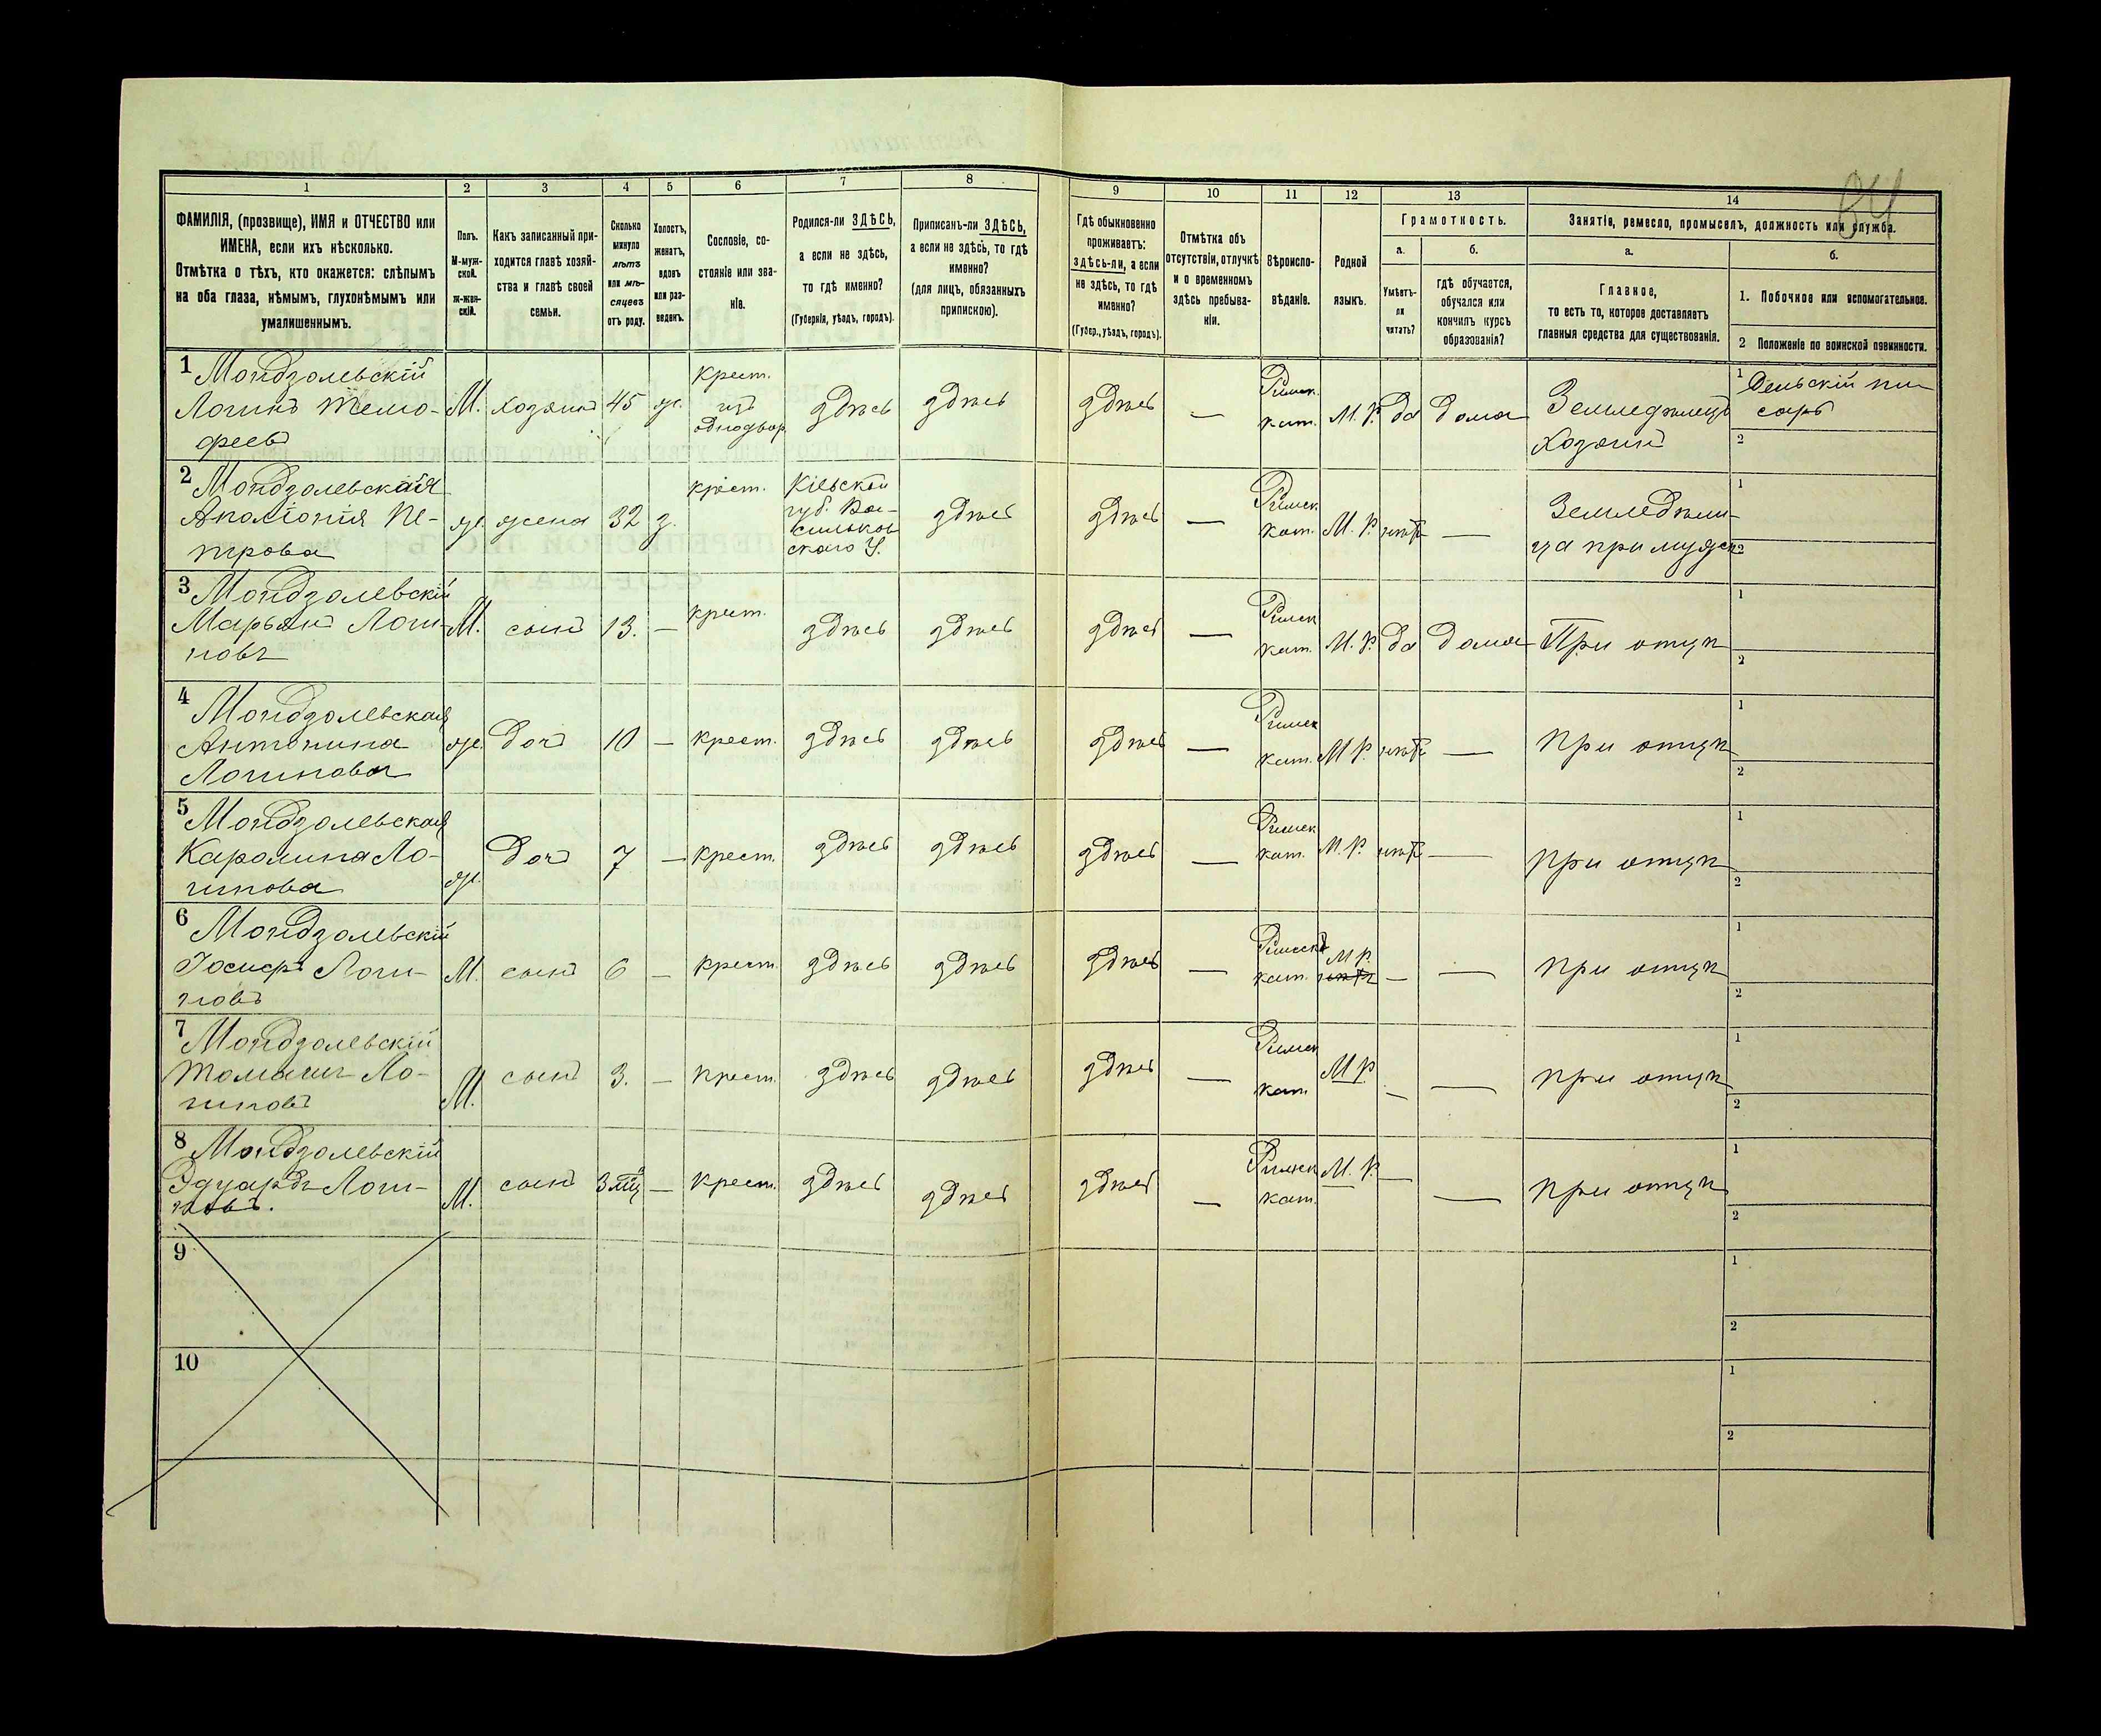 84
1 2 3 4 5 6 7 8 9 10 11 12 13 14
ФАМИЛІЯ, (прозвище), ИМЯ и ОТЧЕСТВО или
ИМЕНА, если ихъ нѣсколько.
Отмѣтка о тѣхъ, кто окажется: слѣпымъ
на оба глаза, нѣмымъ, глухонѣмымъ или
умалишеннымъ.
Полъ.
М-муж-
ской.
ж-жен-
скій.
Какъ записанный при-
ходится главѣ хозяй-
ства и главѣ своей
семьи.
Сколько
минуло
лѣтъ
или мѣ-
сяцевъ
отъ роду.
Холостъ,
женатъ,
вдовъ
или раз-
веденъ.
Сословіе, со-
стояніе или зва-
ніе.
Родился-ли ЗДѢСЬ,
а если не здѣсь,
то гдѣ именно?
(Губернія, уѣздъ, городъ).
Приписанъ-ли ЗДѢСЬ,
а если не здѣсь, то гдѣ
именно?
(для лицъ, обязанныхъ
припискою).
Гдѣ обыкновенно
проживаетъ:
здѣсь-ли, а если
не здѣсь, то гдѣ
именно?
(Губер., уѣздъ, городъ).
Отмѣтка объ
отсутствіи, отлучкѣ
и о временномъ
здѣсь пребыва-
ніи.
Вѣроиспо-
вѣданіе.
Родной
языкъ.
Грамотность.
а.
Умѣетъ-
ли
читать?
б.
гдѣ обучается,
обучался или
кончилъ курсъ
образованія?
Занятіе, ремесло, промыселъ, должность или служба.
а.
Главное,
то есть то, которое доставляетъ
главныя средства для существованія.
б.
1. Побочное или вспомогательное.
2 Положеніе по воинской повинности.
1 Мондзолевскій
Логинъ Тимо-
феевъ
М. хозяинъ 45 ж.
крест.
изъ
однодвор.
здѣсь здѣсь здѣсь —
Римск.
кат.
М. Р. да дома
Земледѣлецъ
Хозяинъ
1 Сельскій пи-
сарь
2
2 Мондзолевская
Аполіонія Пе-
трова
ж. жена 32 з. крест.
Кіевской
губ. Ва-
сильков
скаго У.
здѣсь здѣсь —
Римск
кат.
М. Р. нѣтъ —
Земледѣли-
ца при мужѣ
1
2
3 Мондзолевскій
Марьян Логи-
новъ
М. сынъ 13. — крест. здѣсь здѣсь здѣсь —
Римск
кат.
М. Р. да дома При отцѣ
1
2
4 Мондзолевская
Антонина
Логинова
ж. доч 10 — крест. здѣсь здѣсь здѣсь —
Римск
кат.
М Р. нѣтъ — при отцѣ
1
2
5 Мондзолевская
Каролина Ло-
гинова
ж. доч 7 — крест. здѣсь здѣсь здѣсь —
Римск
кат.
М. Р. нѣтъ — при отцѣ
1
2
6 Мондзолевскій
Іосифъ Логи-
новъ
М. сынъ 6 — крест. здѣсь здѣсь здѣсь —
Римск
кат.
М Р.
нѣтъ
— — при отцѣ
1
2
7 Мондзолевскій
Томашъ Ло-
гиновъ
М. сынъ 3. — крест. здѣсь здѣсь здѣсь —
Римск
кат
М Р. — — при отцѣ
1
2
8 Мондзолевскій
Эдуардъ Логи-
новъ.
М. сынъ 3 мц — крест. здѣсь здѣсь здѣсь —
Римск
кат.
М. Р. — — при отцѣ
1
2
9
1
2
10
1
2